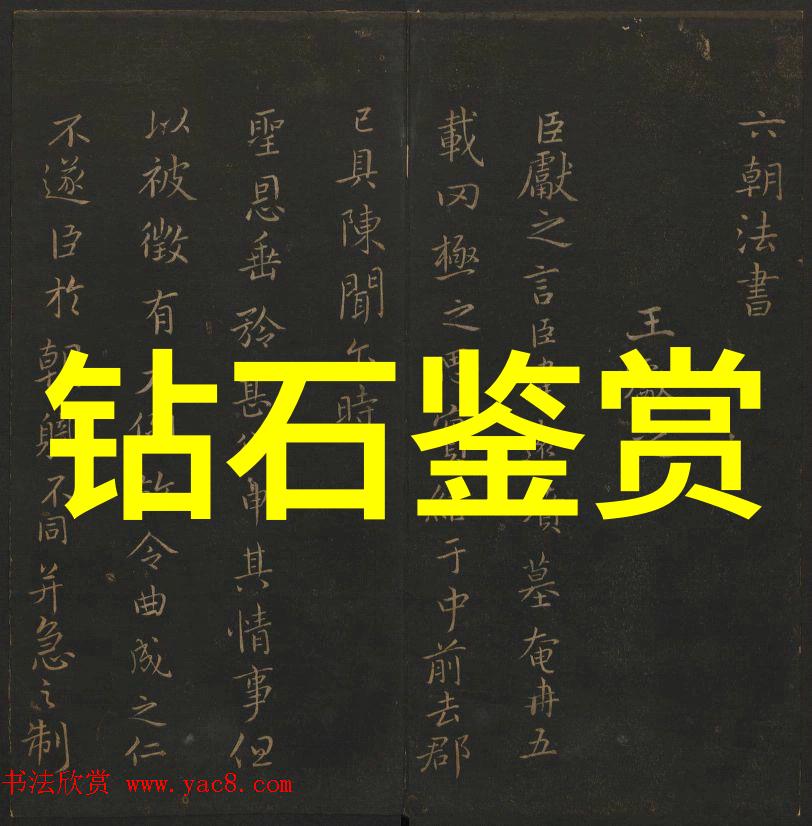 六朝法書
王獻之
臣獻之言臣 墓奄冉五
載罔極之 于中前去郡
已具陳聞 時
聖恩垂矜 其情事但
以被徵有 令曲成之仁
不遂臣於朝 不同并急之制
钻石鉴赏
书法欣赏 www.yac8.com